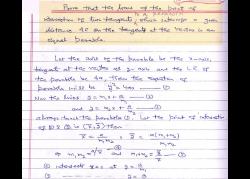 Prove that the locus of the point of
intersection of two tangents, which intercept a given
distance 4c on the tangent at the vertex is an
equal parabola.
Let the axis of the parabola be the x-axis,
tangent at the vertex as y-axis and the L.R. of
the parabola be 4a, then the equation of
parabola will be y² = 4ax —①
Now the lines y = m₁x + a/m₁ —②
and y = m₂x + a/m₂ —③
always touch the parabola ①. Let the point of intersection
of ② & ③ be (x̄, ȳ) then
x̄ = a/m₁m₂ , ȳ = a(m₁+m₂)/m₁m₂
⇒ m₁m₂ = a/x̄ —④ and m₁+m₂ = ȳ/x̄ —⑤
② intersect x=0 at y = a/m₁
③